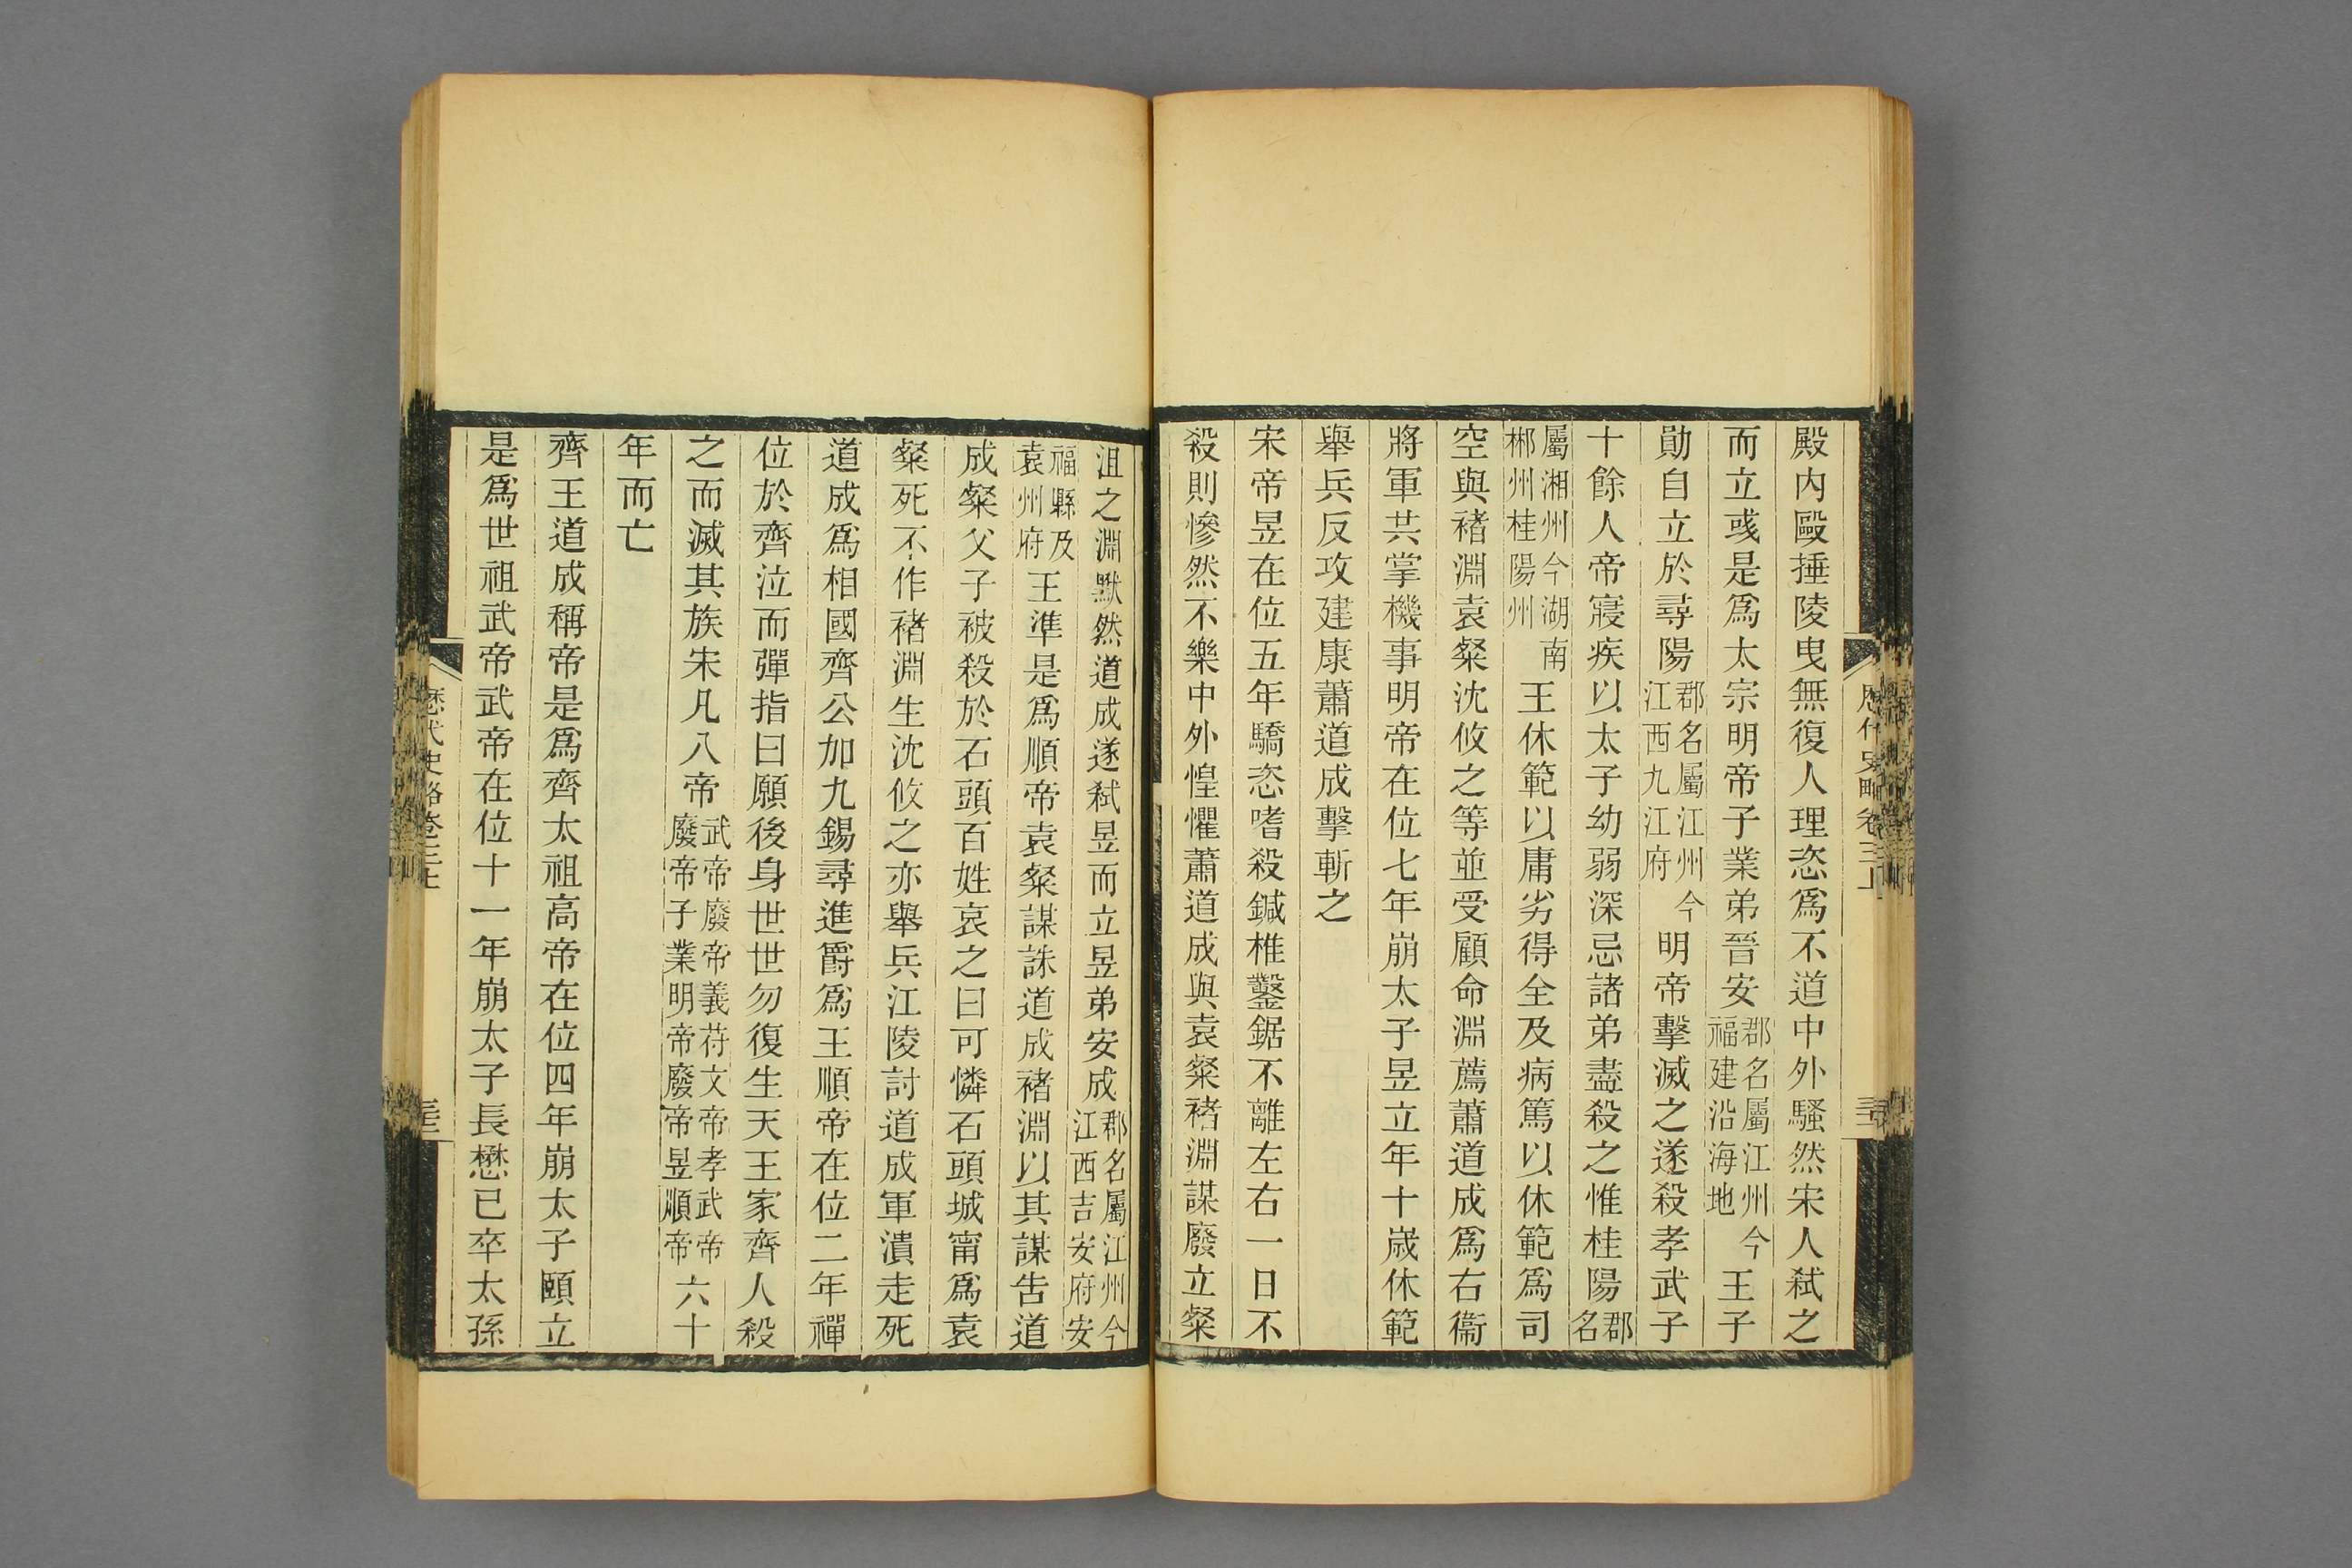 殿內毆捶陵曳無復人理恣爲不道中外騷然宋人弑之
而立彧是爲太宗明帝子業弟晉安郡名屬江州今福建沿海地王子
勛自立於尋陽郡名屬江州今江西九江府明帝擊滅之遂殺孝武子
十餘人帝寢疾以太子幼弱深忌諸弟盡殺之惟桂陽郡名
屬湘州今湖南郴州桂陽州王休範以庸劣得全及病篤以休範爲司
空與褚淵袁粲沈攸之等並受顧命淵薦蕭道成爲右衞
將軍共掌機事明帝在位七年崩太子昱立年十歲休範
舉兵反攻建康蕭道成擊斬之
宋帝昱在位五年驕恣嗜殺鍼椎鑿鋸不離左右一日不
殺則慘然不樂中外惶懼蕭道成與袁粲褚淵謀廢立粲
沮之淵默然道成遂弑昱而立昱弟安成郡名屬江州今江西吉安府安
福縣及袁州府王準是爲順帝袁粲謀誅道成褚淵以其謀告道
成粲父子被殺於石頭百姓哀之曰可憐石頭城甯爲袁
粲死不作褚淵生沈攸之亦舉兵江陵討道成軍潰走死
道成爲相國齊公加九錫尋進爵爲王順帝在位二年禪
位於齊泣而彈指曰願後身世世勿復生天王家齊人殺
之而滅其族宋凡八帝武帝廢帝義苻文帝孝武帝廢帝子業明帝廢帝昱順帝六十
年而亡
齊王道成稱帝是爲齊太祖高帝在位四年崩太子賾立
是爲世祖武帝武帝在位十一年崩太子長懋已卒太孫
歷代史略卷三上